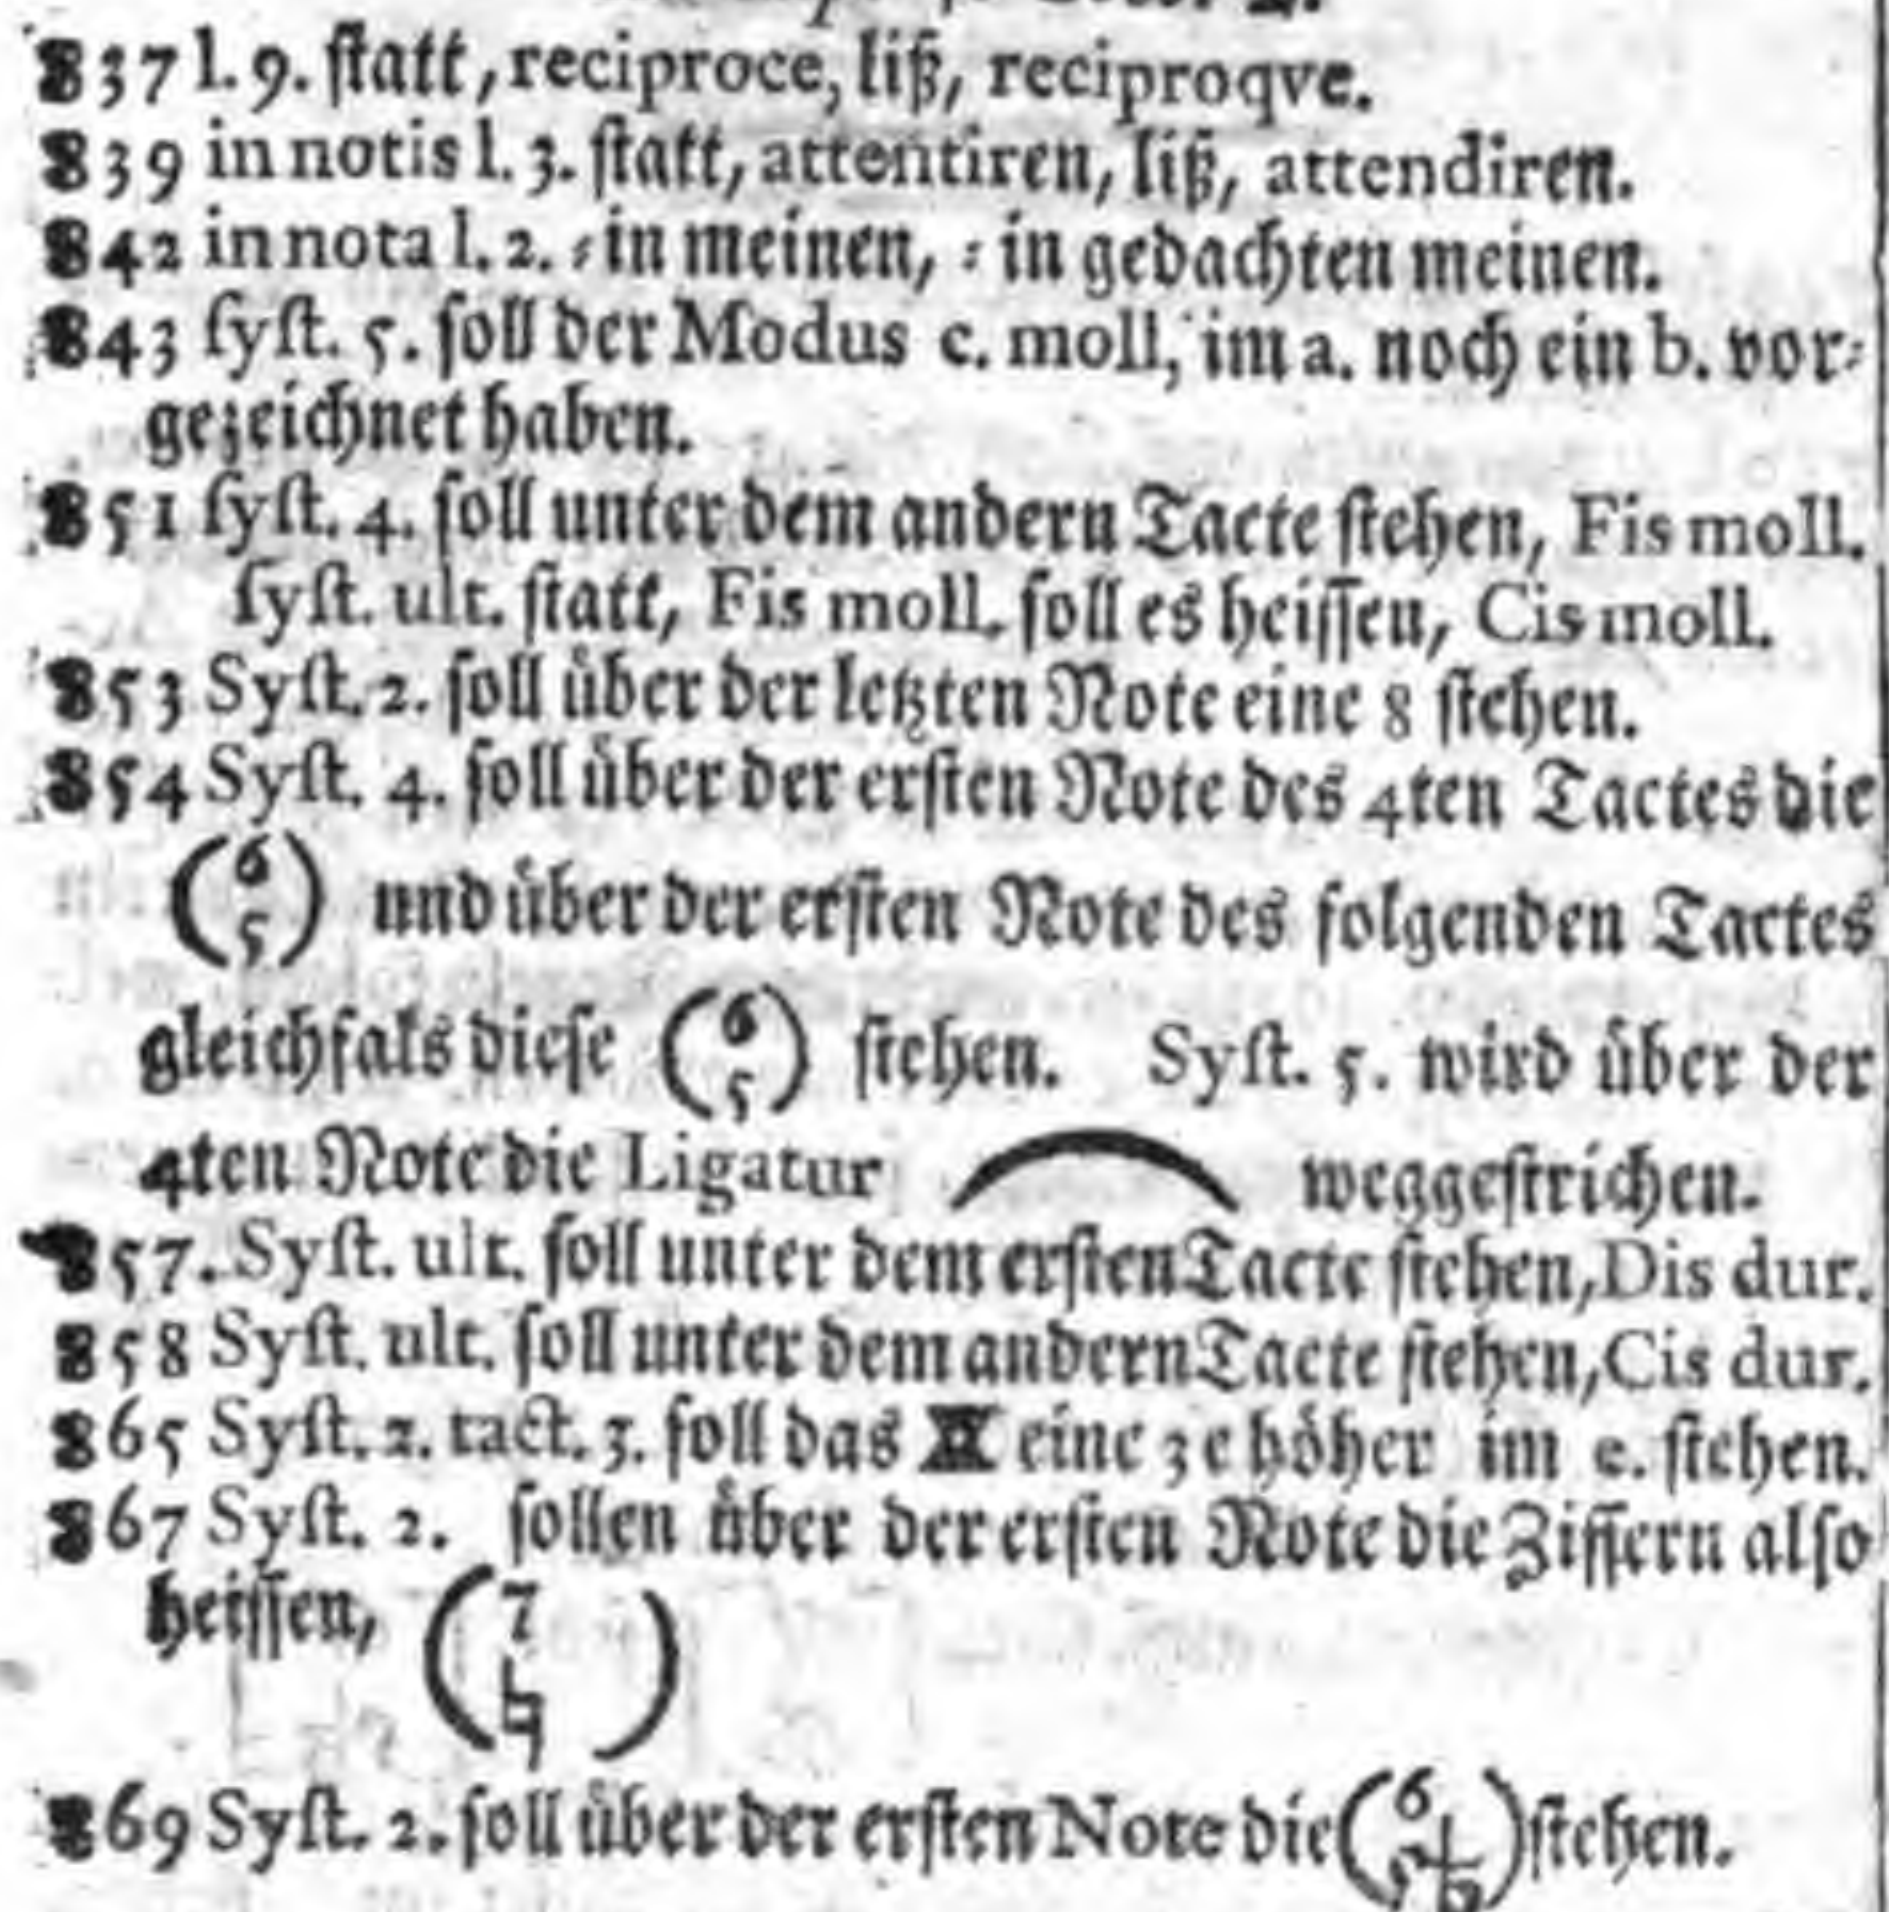 837 l. 9. ſtatt, reciproce, liß, reciproqve.
839 in notis l. 3. ſtatt, attentiren, liß, attendiren.
842 in nota l. 2. ⸗ in meinen, ⸗ in gedachten meinen.
843 ſyſt. 5. ſoll der Modus c. moll, im a. noch ein b. vor⸗
gezeichnet haben.
851 ſyſt. 4. ſoll unter dem andern Tacte ſtehen, Fis moll.
ſyſt. ult. ſtatt, Fis moll. ſoll es heiſſen, Cis moll.
853 Syſt. 2. ſoll uͤber der letzten Note eine 8 ſtehen.
854 Syſt. 4. ſoll uͤber der erſten Note des 4ten Tactes die
(6 5) und uͤber der erſten Note des folgenden Tactes
gleichfals dieſe (6 5) ſtehen. Syſt. 5. wird uͤber der
4ten Note die Ligatur ⁀ weggeſtrichen.
857. Syſt. ult. ſoll unter dem erſten Tacte ſtehen, Dis dur.
858 Syſt. ult. ſoll unter dem andern Tacte ſtehen, Cis dur.
865 Syſt. 2. tact. 3. ſoll das ♯ eine 3e hoͤher im e. ſtehen.
867 Syſt. 2. ſollen uͤber der erſten Note die Ziffern alſo
heiſſen, (7 ♮)
869 Syſt. 2. ſoll uͤber der erſten Note die (6 5♮) ſtehen.